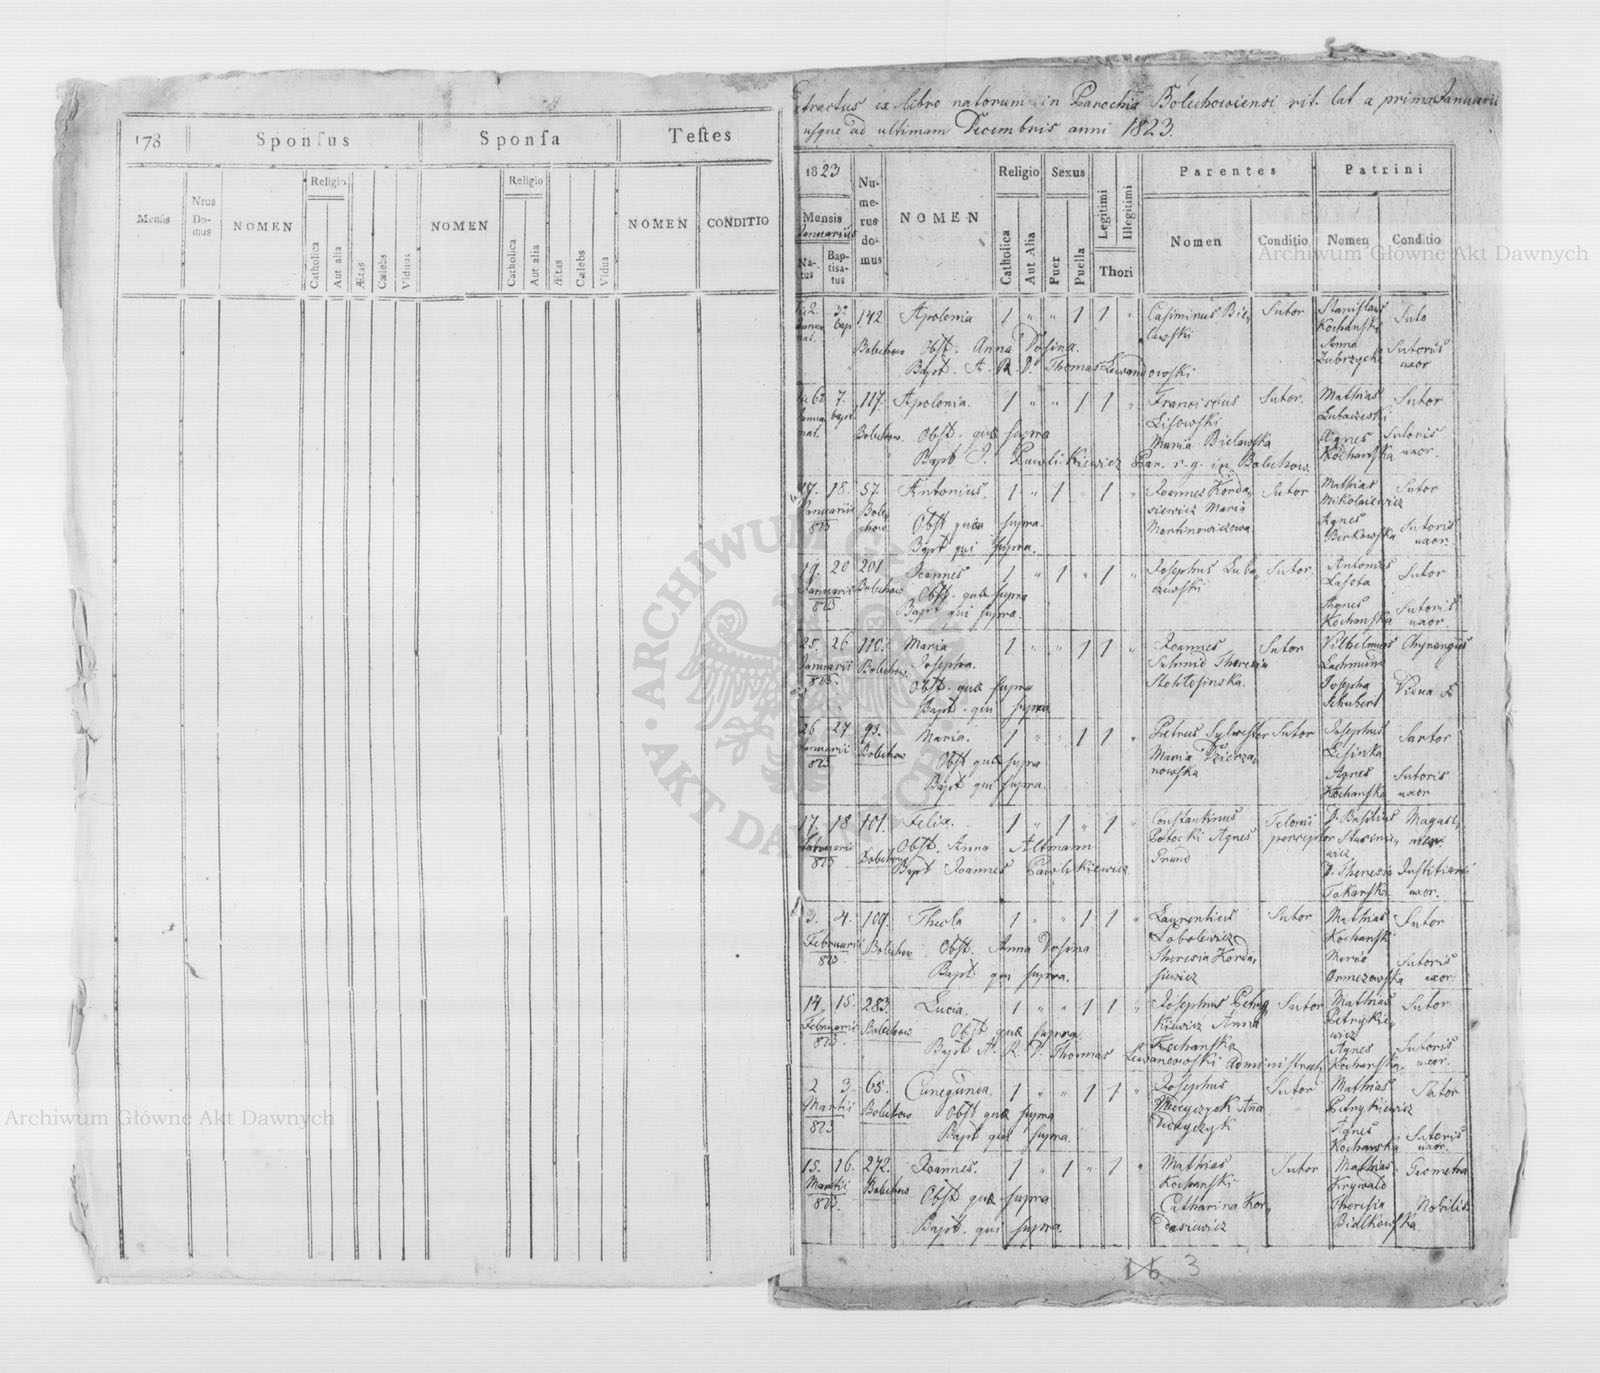 Extractus ex libro natorum in Parochia Bolechowiensi rit. lat a prima Januarii
usque ad ultimam Decembris anni 1823.
178
Sponsus
Sponsa
Testes
Mensis
Nrus Domus
NOMEN
Religio
Catholica
Aut alia
Ætas
Cælebs
Viduus
NOMEN
Religio
Catholica
Aut alia
Ætas
Cælebs
Vidua
NOMEN
CONDITIO
1823
Mensis
Januarius
Natus
Baptisatus
Numerus domus
NOMEN
Religio
Catholica
Aut Alia
Sexus
Puer
Puella
Legitimi
Illegitimi
Thori
Parentes
Nomen
Conditio
Patrini
Nomen
Conditio
2. 3 142 Apolonia 1 " " 1 1 " Casimirus Bie- Sutor Stanislaus
nat. bap lawski Kochanski
Bolechow Obst. Anna Dosina. Anna Sutoris
Bapt. A. R. D. Thomas Lewandowski uxor
6 7. 117. Apolonia. 1 " " 1 1 " Franciscus Sutor. Mathias Sutor
nat. bapt. Lisowski
Bolechow. Obst. quæ supra Maria Bielawska Agnes Sutoris
Bapt J. Pawlikiewicz Par. r. g. in Bolechow. Kochanska uxor.
17. 18. 57. Antonius. 1 " 1 " 1 " Joannes Korda- Sutor Mathias Sutor
Januarii Bole- siewicz Maria Mikolaiewicz
823 chow. Obst quæ supra. Martinowiczowa Agnes Sutoris
Bapt qui supra. uxor.
19. 20 201 Joannes 1 " 1 " 1 " Josephus Luba- Sutor. Antonius Sutor
Januarii Bolechow Obst. quæ supra czewski Lasota
823 Bapt qui supra. Agnes Sutoris
Kochanska uxor.
25. 26 110. Maria 1 " " 1 1 " Joannes Sutor Vilhelmus
Januarii Bolechow. Josepha. Schmid Theresia Lachmund
823. Obst. quæ supra Josepha Vidua
Bapt. qui supra Schubert
26 27 93. Maria. 1 " " 1 1 " Petrus Sylwester Sutor Josephus Sartor
Januarii Bolechow Obst quæ supra Maria Dzierza-
823 Bapt qui supra. nowska Agnes Sutoris
Kochanska uxor
17. 18 101. Felix. 1 " 1 " 1 " Constantinus Telonii D. Basilius
Februarii Bolechow Obst. Anna Altmann Potocki Agnes perceptor
823 Bapt Joannes Pawlikiewicz. Prund D. Theresia
uxor.
3. 4. 109. Thecla 1 " " 1 1 " Laurentius Sutor Mathias Sutor
Februarii Bolechow Obst. Anna Dosina Sobolewicz Kochanski
823 Bapt. qui supra. Theresia Korda- Sutoris
siewicz uxor
14 15. 283. Lucia. 1 " " 1 1 " Josephus Petry- Sutor Mathias Sutor
Februarii Bolechow Obst quæ supra. kiewicz Anna Petrykie-
823 Kochanska wicz
Bapt A. R. D. Thomas Lewandowski Administrat. Agnes Sutoris
Kochanska. uxor.
2 3. 65. Cunegunda. 1 " " 1 1 " Josephus Sutor Mathias Sutor
Martii Bolechow Obst quæ supra Petrykiewicz
823 Bapt qui supra. Agnes Sutoris
Kochanska uxor.
15. 16. 272. Joannes. 1 " 1 " 1 " Mathias Sutor Mathias Geometra
Martii Bolechow Obst quæ supra Kochanski Krywald
823. Catharina Kor- Theresia Nobilis
Bapt. qui supra. dasiewicz Bialkowska
16 3
Archiwum Główne Akt Dawnych
Archiwum Główne Akt Dawnych
ARCHIWUM GŁÓWNE AKT DAWNYCH